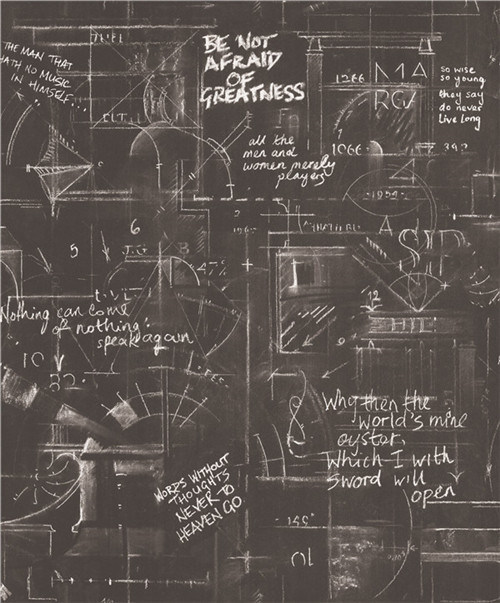 THE MAN THAT
HATH NO MUSIC
IN HIMSELF...
BE NOT
AFRAID
OF
GREATNESS
1266
MA
RG
so wise
so young
they say
do never
live long
all the
men and
women merely
players
1066
392
1954
6
5
J.G
B
A
Nothing can come
of nothing:
speak again
10
12
Why then the
world's mine
oyster,
Which I with
sword will
open
WORDS WITHOUT
THOUGHTS
NEVER TO
HEAVEN GO